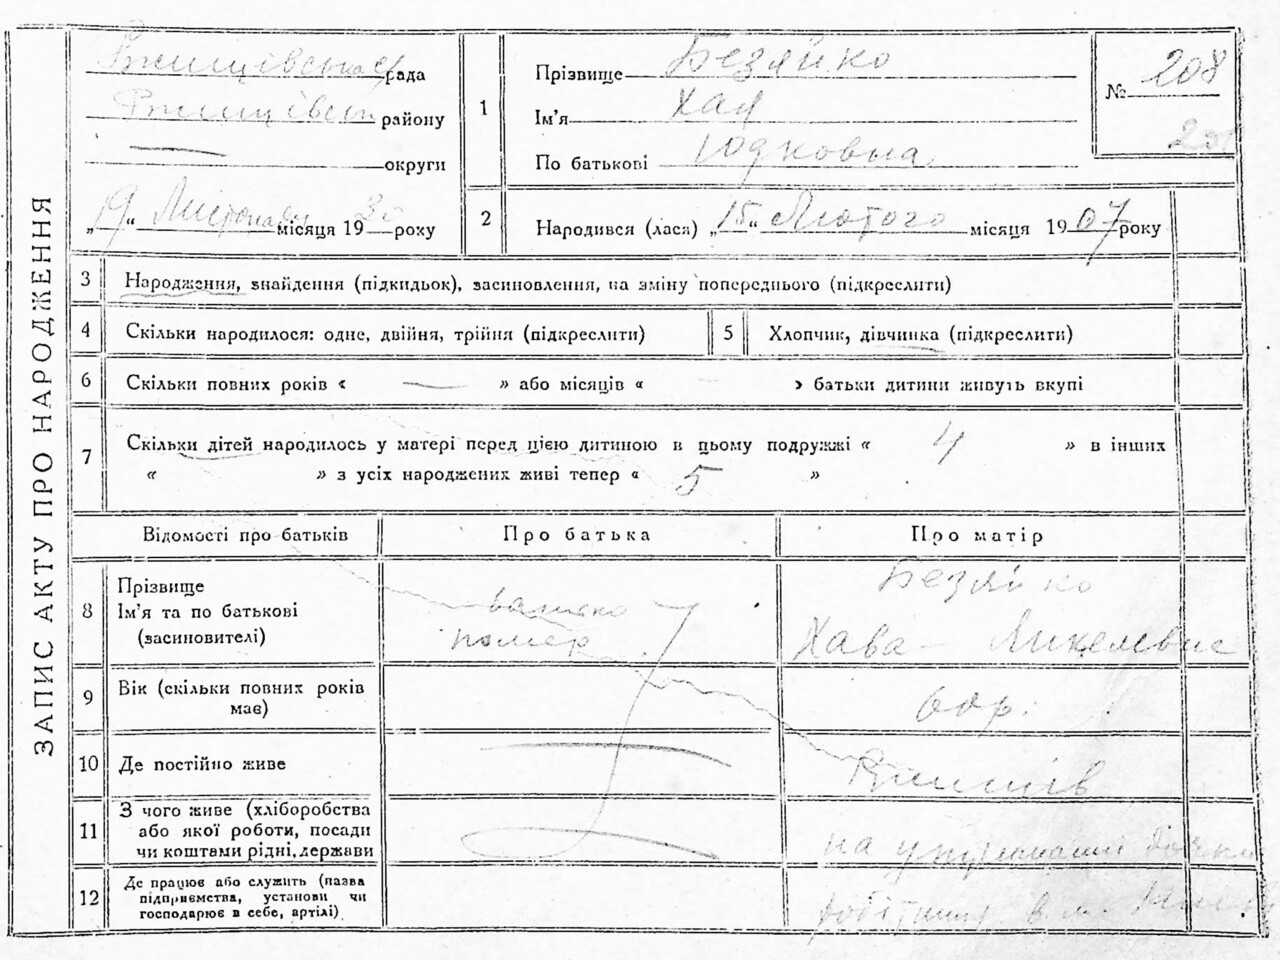 ЗАПИС АКТУ ПРО НАРОДЖЕННЯ
Ржищівська с/рада
Ржищівськ району
— округи
„19“ Листопада місяця 1930 року
1 Прізвище Безяйко
Ім'я Хая
По батькові Юдковна
№ 208
2 Народився (лася) „15“ Лютого місяця 1907 року
3 Народження, знайдення (підкидьок), засиновлення, на зміну попереднього (підкреслити)
4 Скільки народилося: одне, двійня, трійня (підкреслити)
5 Хлопчик, дівчинка (підкреслити)
6 Скільки повних років « — » або місяців « » батьки дитини живуть вкупі
7 Скільки дітей народилось у матері перед цією дитиною в цьому подружжі « 4 » в інших
« » з усіх народжених живі тепер « 5 »
Відомості про батьків Про батька Про матір
8 Прізвище
Ім'я та по батькові
(засиновителі)
помер
Безяйко
Хава
9 Вік (скільки повних років
має)
60р.
10 Де постійно живе
Ржищів
11 З чого живе (хліборобства
або якої роботи, посади
чи коштами рідні, держави
на утриманні дочки
12 Де працює або служить (назва
підприємства, установи чи
господарює в себе, артілі)
робітниця в м.